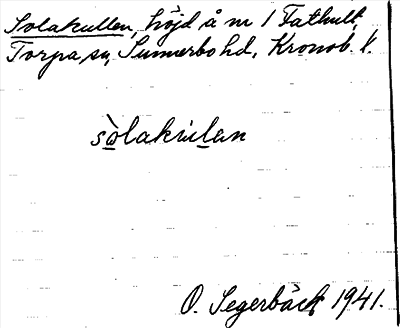 Solakullen, höjd å m 1 Fathult,
Torpa sn, Sunnerbo hd, Kronob. l.
sòlakùlen
O. Segerbäck 1941.